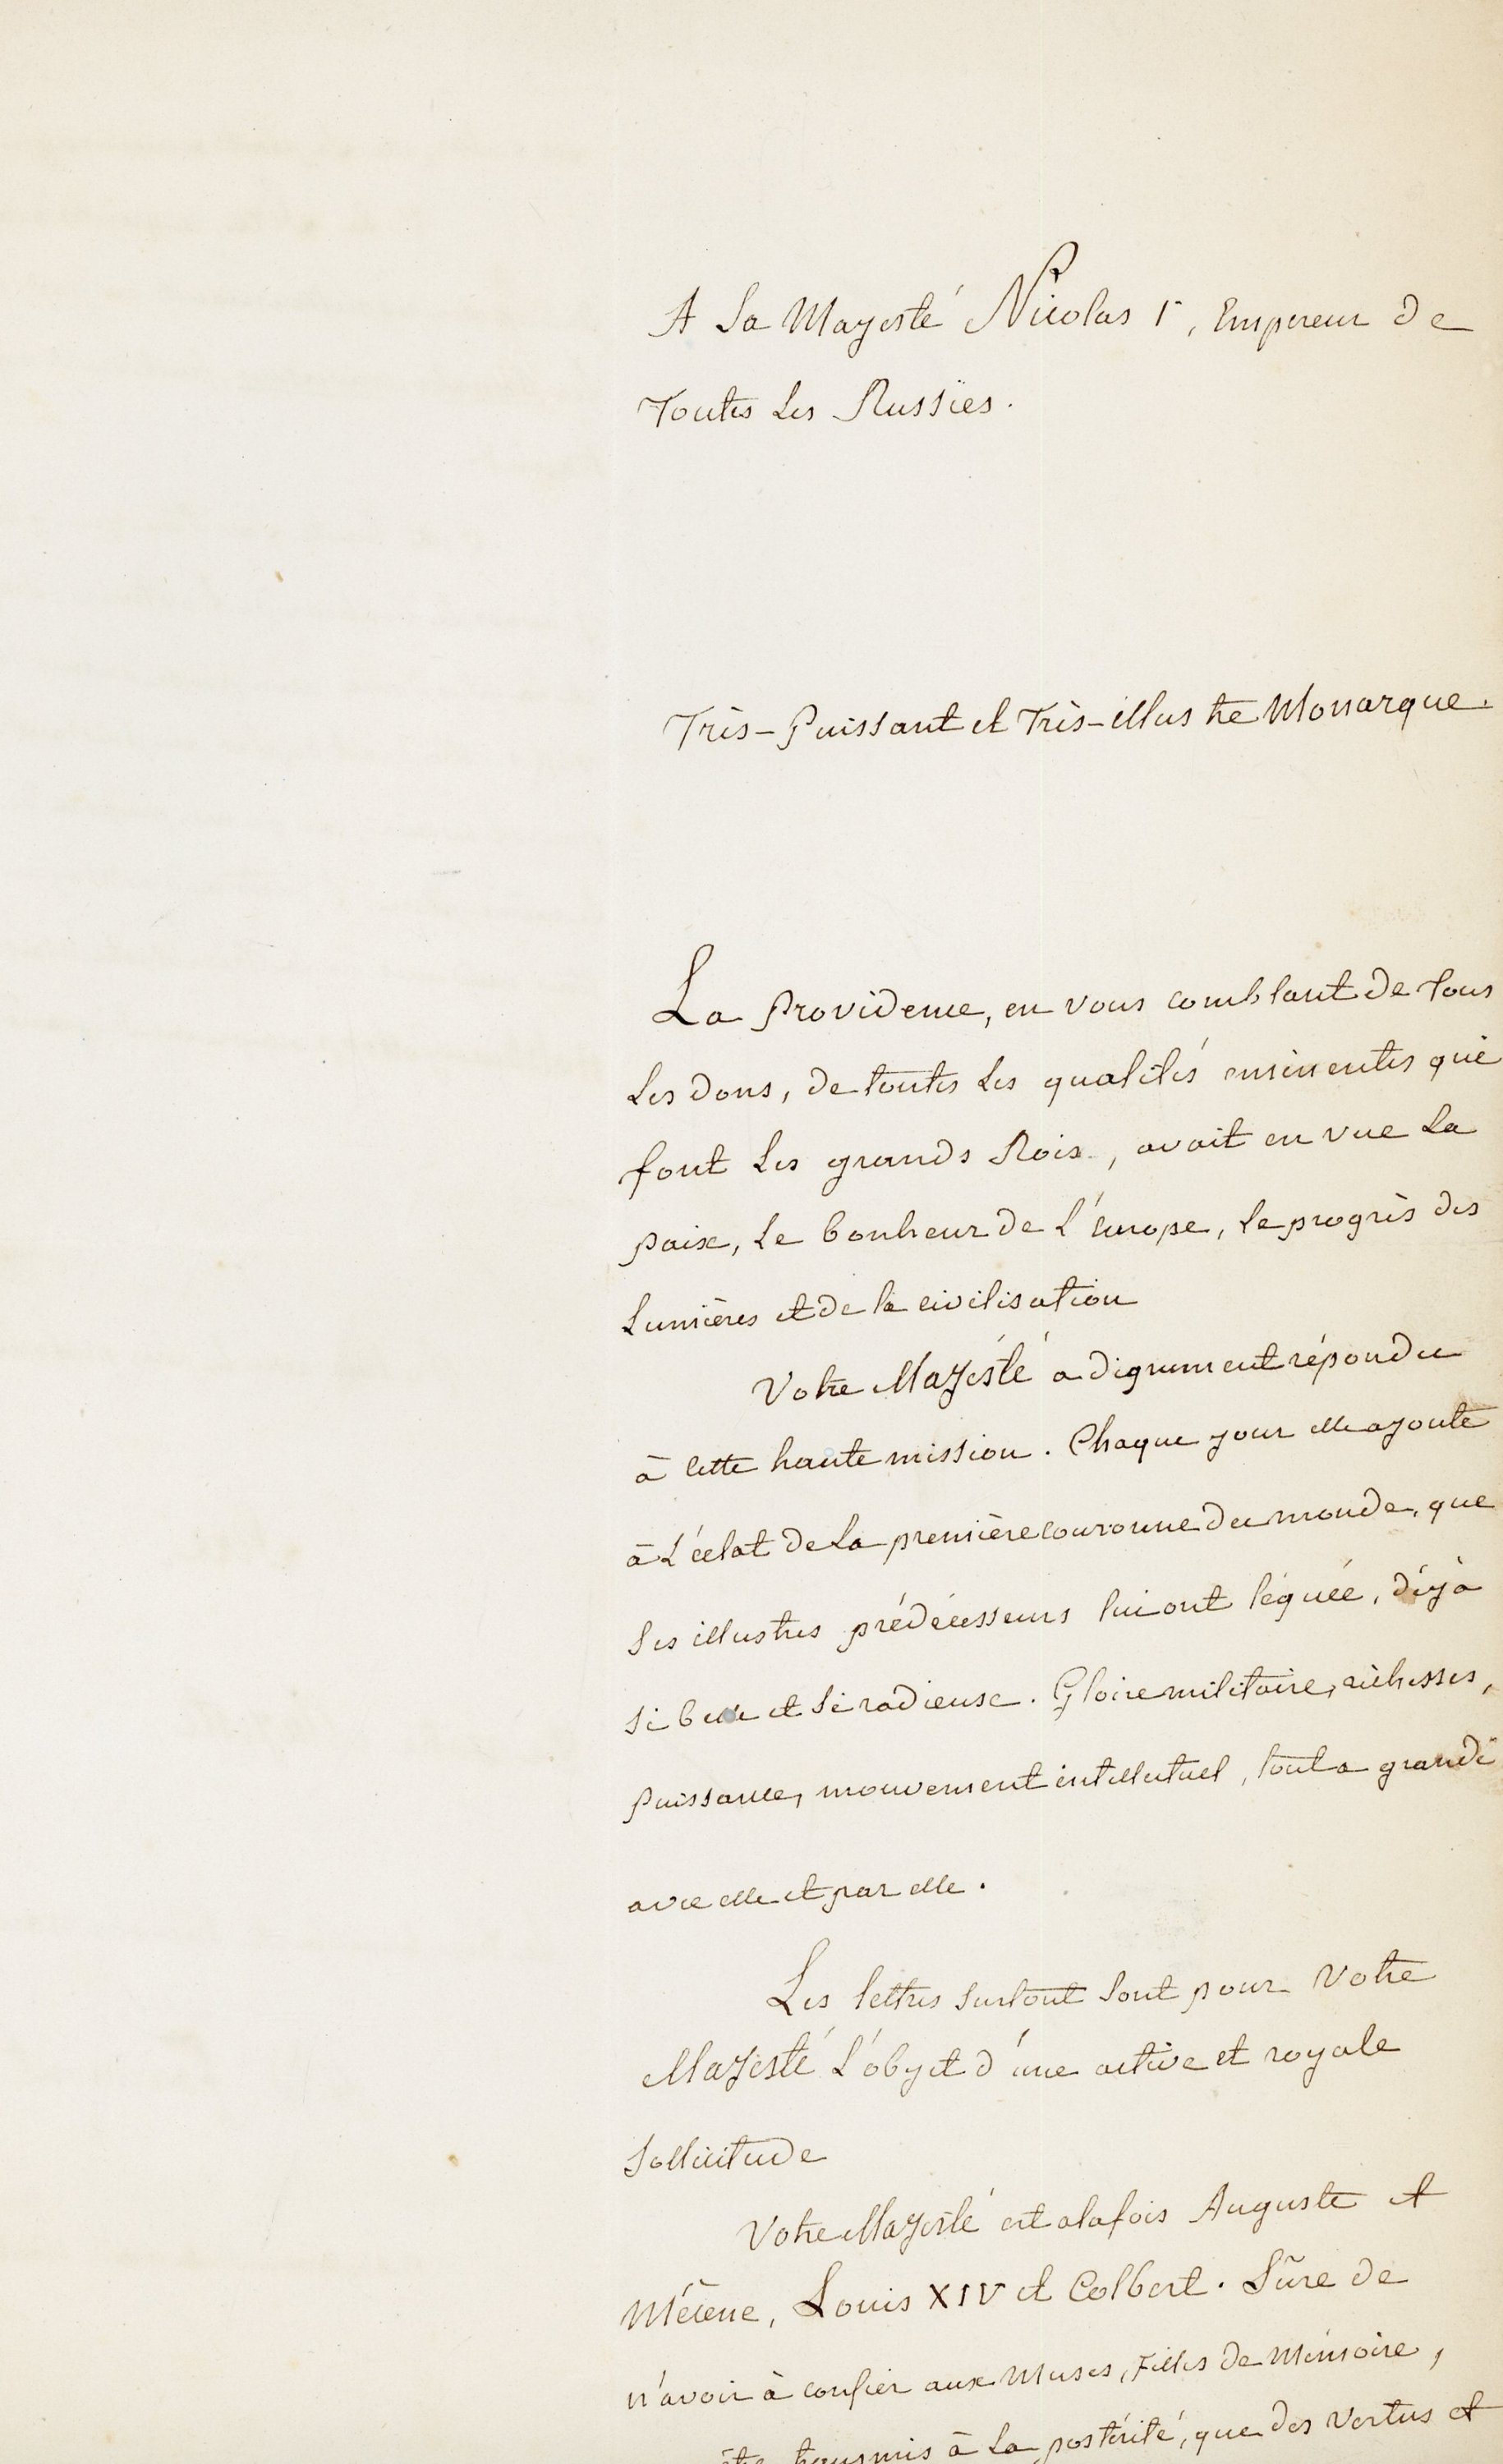 A Sa Majesté Nicolas 1r, Empereur de
Toutes Les Russies.
Très-Puissant et Très-illustre Monarque.
La Providence, en vous comblant de tous
Les dons, de toutes Les qualités eminentes qui
font Les grands Rois, avait en vue La
paix, Le bonheur de L'Europe, Le progrès des
Lumières et de la civilisation
Votre Majésté a dignement répondu
à cette haute mission. Chaque jour elle ajoute
à L'éclat de La première couronne du monde, que
Ses illustres prédécesseurs lui ont léguée, déjà
Si belle et Si radieuse. Gloire militaire, richesses,
puissance, mouvement intellectuel, tout a grandi
avec elle et par elle.
Les lettres surtout sont pour Votre
Majesté L'objet d'une active et royale
Sollicitude
Votre Majesté est alafois Auguste et
Mécène, Louis XIV et Colbert. Sûre de
n'avoir à confier aux Muses, Filles de Mémoire,
être transmis à La postérité, que des Vertus et